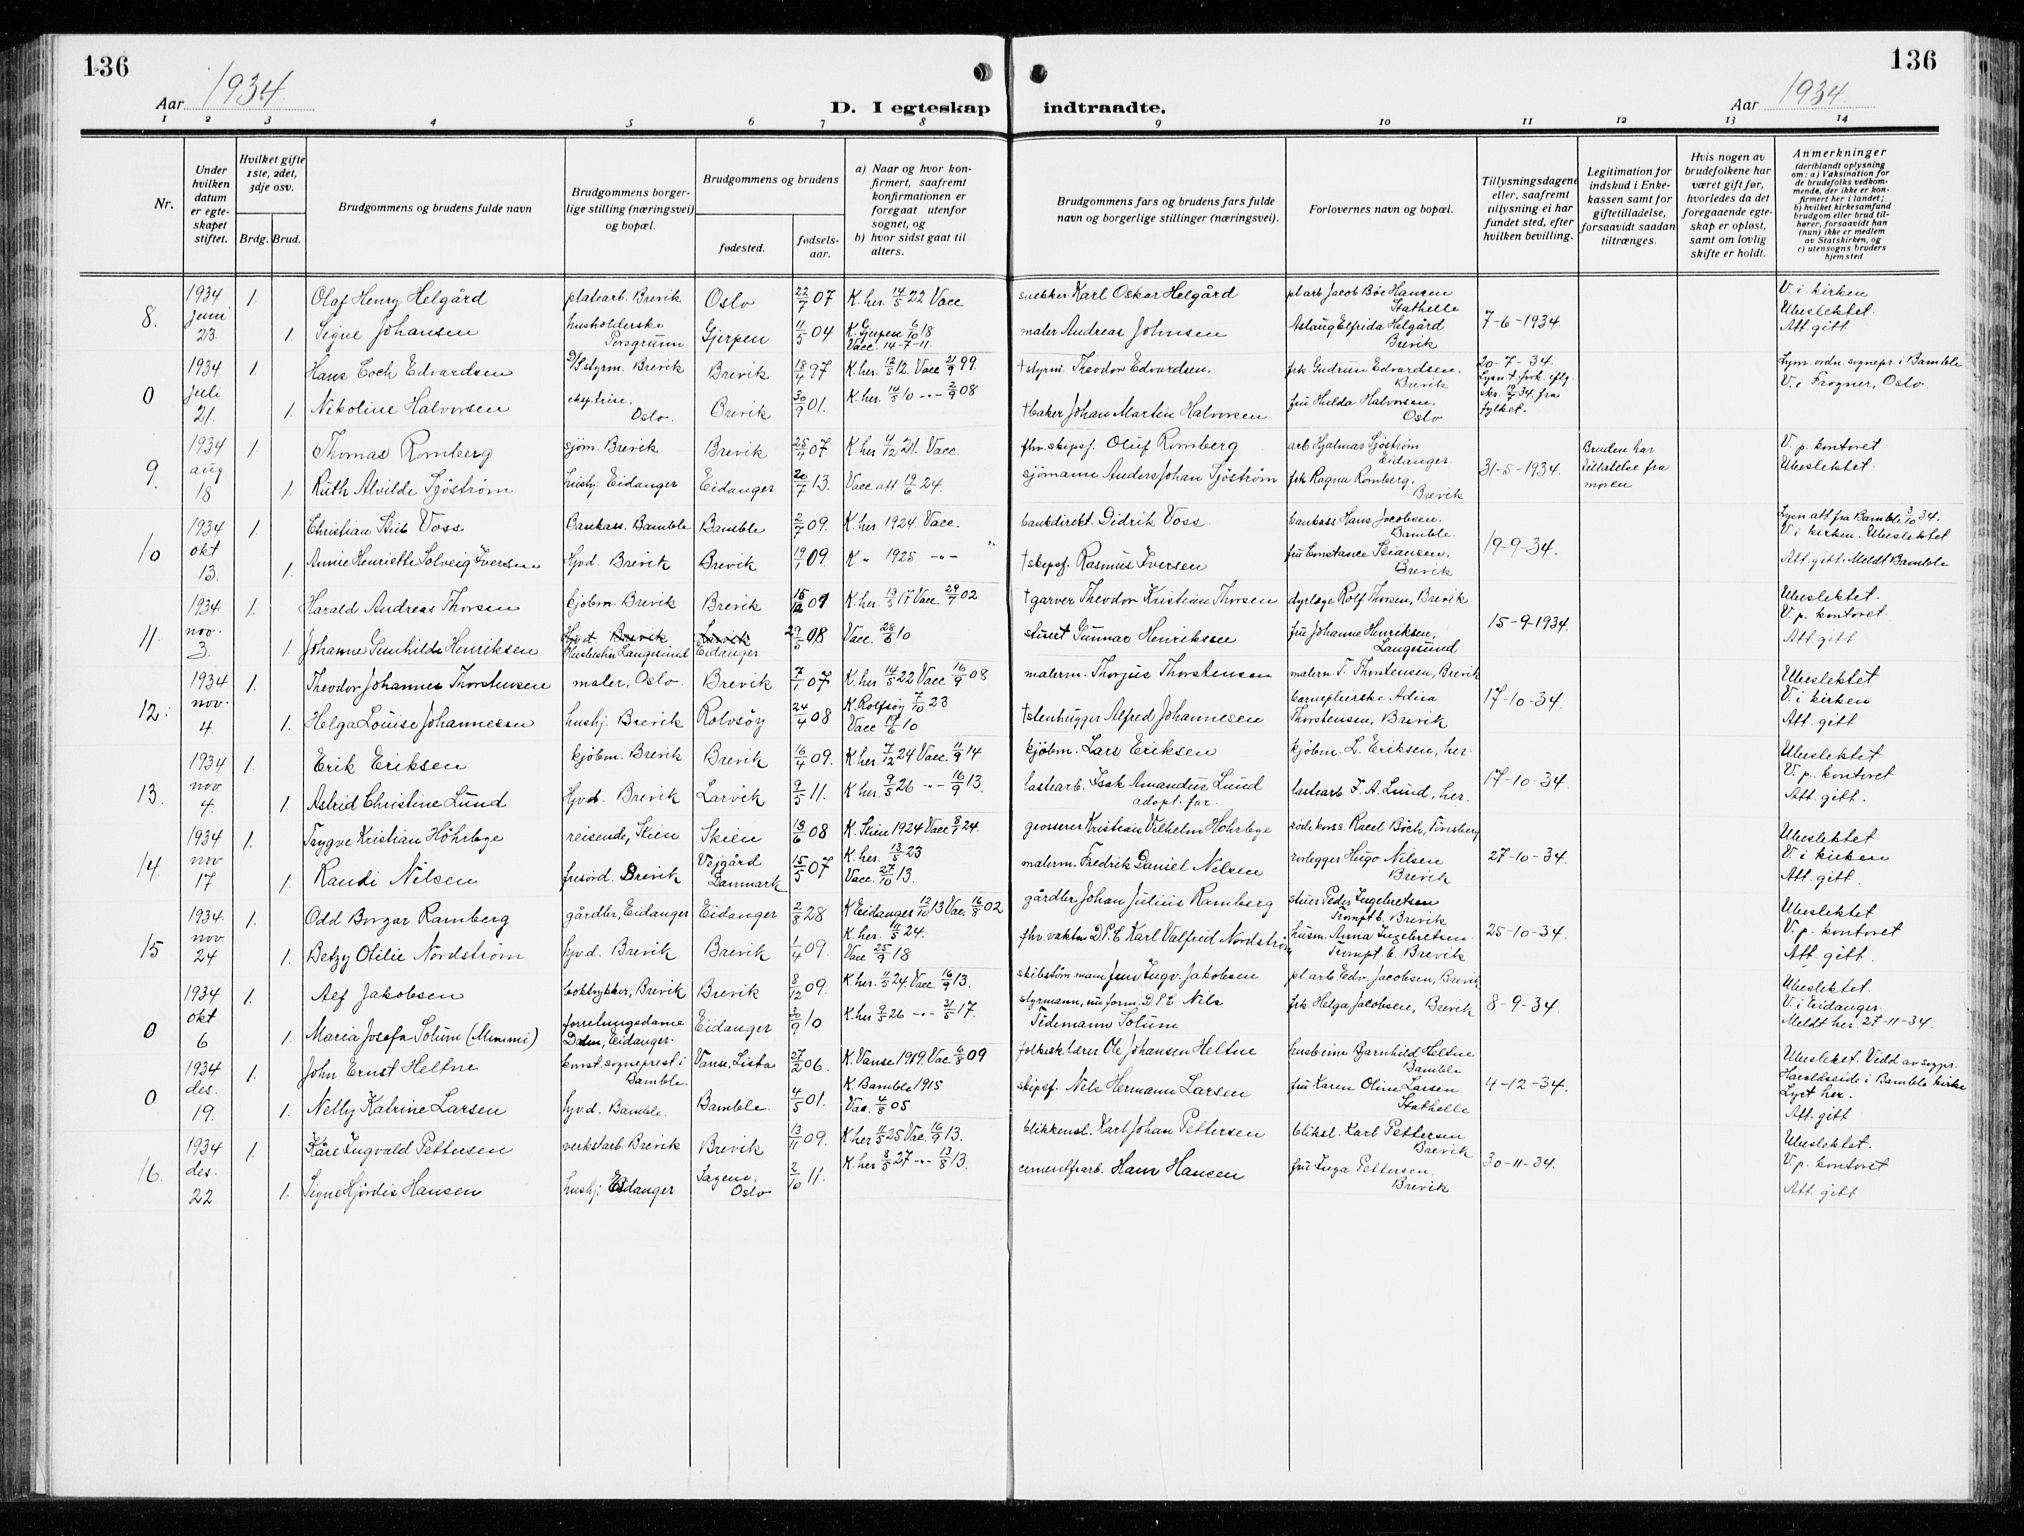 136
Aar 1934.
D. I egteskap indtraadte.
Aar 1934.
136
1 2 3 4 5 6 7 8 9 10 11 12 13 14
Nr.
Under hvilken datum er egteskapet stiftet.
Hvilket gifte 1ste, 2det, 3dje osv.
Brdg. Brud.
Brudgommens og brudens fulde navn
Brudgommens borgerlige stilling (næringsvei) og bopæl.
Brudgommens og brudens
fødested. fødselsaar.
a) Naar og hvor konfirmert, saafremt konfirmationen er foregaat utenfor sognet, og
b) hvor sidst gaat til alters.
Brudgommens fars og brudens fars fulde navn og borgerlige stillinger (næringsvei).
Forlovernes navn og bopæl.
Tillysningsdagene eller, saafremt tillysning ei har fundet sted, efter hvilken bevilling.
Legitimation for indskud i Enkekassen samt for giftetilladelse, forsaavidt saadan tiltrænges.
Hvis nogen av brudefolkene har været gift før, hvorledes da det foregaaende egteskap er opløst, samt om lovlig skifte er holdt.
Anmerkninger
(deriblandt oplysning om: a) Vaksination for de brudefolks vedkommende, der ikke er konfirmert her i landet; b) hvilket kirkesamfund brudgom eller brud tilhører, forsaavidt han (hun) ikke er medlem av Statskirken, og c) utensogns bruders hjemsted
8. 1934 Juni 23 1. Olaf Henry Helgård platearb. Brevik Oslo 22/7 07 K. her. 14/5 22 Vacc snekker Karl Oskar Helgård pl arb Jacob Bøe Hansen Stathelle 7-6-1934 V. i. kirken Ubeslektet. Att. gitt
1. Signe Johansen husholderske Porsgrunn Gjerpen 11/5 04 K. Gjerpen 6/10 18 Vacc. 14-7-11. maler Andreas Johnsen Aslaug Elfrida Helgård Brevik
0 1934 Juli 21. 1. Hans Coch Edvardsen D/S styrm. Brevik Brevik 18/4 97 K. her. 12/5 12. Vacc 21/9 99. † styrm. Theodor Edvardsen. frk. Gudrun Edvardsen. Brevik 20-7-34. Lysm. ordn. sognepr. i Bamble V. i Frogner, Oslo.
1. Nikoline Halvorsen Oslo. Brevik 30/9 01. K. her. 14/5 10 -"- 2/9 08 † baker Johan Martin Halvorsen fru Hulda Halvorsen. Oslo fylket.
9. 1934 aug 18 1. Thomas Romberg sjøm. Brevik Brevik 25/4 07 K. her 4/12 21. Vacc. fhv. skipsf. Oluf Romberg arb Hjalmar Sjöström Eidanger 31-5-1934. Bruden har tillatelse fra moren V. p. kontoret. Ubeslektet.
1. Ruth Alvilde Sjöström hushj. Eidanger Eidanger 20/7 13. Vacc att 19/6 24. sjömann Anders Johan Sjöström frk Ragna Romberg, Brevik
10 1934 okt 13. 1. Christian Stub Voss Bankass. Bamble Bamble 2/7 09. K. her. 1924. Vacc. bankdirekt. Didrik Voss bankass Hans Jacobsen. Bamble. 19-9-34. Lysn att fra Bamble 3/10 34. V. i kirken. Ubeslektet
1. Annie Henriette Solveig Iversen Hjvd. Brevik Brevik 19/1 09. K " 1925 -"- † skipsf. Rasmus Iversen fru Constance Brevik Att. gitt. Meldt Bamble
11. 1934 nov. 3. 1. Harald Andreas Thorsen kjøbm. Brevik Brevik K. her. 13/5 17 Vacc. 29/7 02 † garver Theodor Kristian Thorsen dyrlæge Rolf Thorsen, Brevik 15-9-1934. Ubeslektet. V. p. kontoret. Att. gitt
1. Johanne Gunhilde Henriksen Hjvd. Brevik Langesund Larvik Eidanger 29/5 08 Vacc. 28/6 10 stuert Gunnar Henriksen fru Johanne Henriksen, Langesund
12. 1934 nov. 4. 1. Theodor Johannes Thorstensen maler, Oslo. Brevik 7/1 07 K. her 14/5 22 Vacc 16/9 08 malerm. Thorjus Thorstensen malerm. T. Thorstensen, Brevik 17-10-34. Ubeslektet V. i kirken Att. gitt
1. Helga Louise Johannesen hushj. Brevik Rolvsøy 24/4 08 K. Rolfsøy 7/10 23 Vacc 19/6 10 † stenhugger Alfred Johannesen barnepleierske Thorstensen, Brevik
13. 1934 nov 4. 1. Erik Eriksen kjøbm. Brevik Brevik 16/4 09. K. her. 7/12 24 Vacc. 11/9 14 kjöbm. Lars Eriksen kjøbm. L. Eriksen, her. 17-10-34. Ubeslektet V. p. kontoret Att. gitt.
1. Astrid Christine Lund Hjvd. Brevik Larvik 9/5 11. K her. 9/5 26 -"- 16/9 13. lastearb. Isak Amandus Lund adopt. far. lastearb I. A. Lund, her.
14. 1934 nov 17 1. Trygve Kristian Höhrbye reisende, Skien Skien 13/6 08 K. Skien 1924 Vacc 8/1 24. grosserer Kristian Vilhelm Höhrbye Tønsberg 27-10-34. Ubeslektet V. i kirken Att. gitt.
1. Randi Nilsen Brevik Vejgård Danmark 15/5 07 K. her. 13/5 23 Vacc. 27/10 13. malerm. Fredrik Daniel Nelsen rørlegger Hugo Nilsen Brevik
15 1934. nov 24 1. Odd Borgar Ramberg gårdbr., Eidanger Eidanger 2/8 28 K Eidanger 12/10 13 Vac. 16/8 02 gårdbr Johan Julius Ramberg stuer Peder Ingebretsen Tromptb. Brevik 25-10-34. Ubeslektet V. p. kontoret Att. gitt.
1. Betzy Otilie Nordström hjvd. Brevik Brevik 1/4 09. K. her. 11/5 24. Vacc 25/9 18 fhv. vaktm. D.P.C. Karl Valfrid Nordström husm. Anna Ingebretsen Trompt b. Brevik
0 1934 okt 6 1. Alf Jakobsen boktrykker, Brevik Brevik 8/12 09. K. her. 11/5 24. Vacc. 16/9 13. Jens Ingv. Jakobsen pl. arb Edv. Jacobsen, Brevik 8-9-34. Ubeslektet. V. i Eidanger. Meldt her. 27-11-34.
1. Maria Josefa Solum (Mimmi) forretningsdame Eidanger. Eidanger 30/9 10 K. her 9/5 26 -"- 31/5 17. styrmann, nu form. D.P.C. Nils Tidemann Solum frk. Helga Jacobsen, Brevik
0 1934 des. 19. 1. John Ernst Heltne Const. sogneprest i Bamble. Vanse, Lista 27/2 06. K. Vanse 1919 Vac. 6/8 09 folkesk. lærer Ole Johansen Heltne Bjarnhild Heltne Bamble 4-12-34. Ubeslekt. Viddd av sogpr. Haraldseide i Bamble kirke Lyst her. Att. gitt
1. Nelly Katrine Larsen hjvd. Bamble. Bamble. 4/5 01. K Bamble 1915 Vac. 4/8 05 skipsf. Nils Hermann Larsen fru Karen Oline Larsen Stathelle
16. 1934 des. 22 1. Kåre Ingvald Pettersen verkstarb. Brevik Brevik 13/11 09. K her 11/5 25 Vac. 16/9 13. blikkensl. Karl Johan Pettersen bliksl. Karl Pettersen Brevik 30-11-34. Ubeslektet. V. p. kontoret Att. gitt
1. Signe Hjördis Hansen hushj. Eidanger Sagene, Oslo 2/10 11. K. her 8/5 27 -"- 13/8 13. cementarb. Hans Hansen fru Inga Pettersen, Brevik